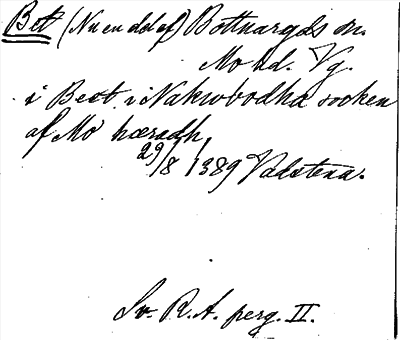 Bet (Nu en del af) Bottnaryds sn.
Mo hd. Vg.
i Beet i Nakwbodha socken
af Mo hæradh,
29/8 1389 Vadstena.
Sv. R. A. perg. II.